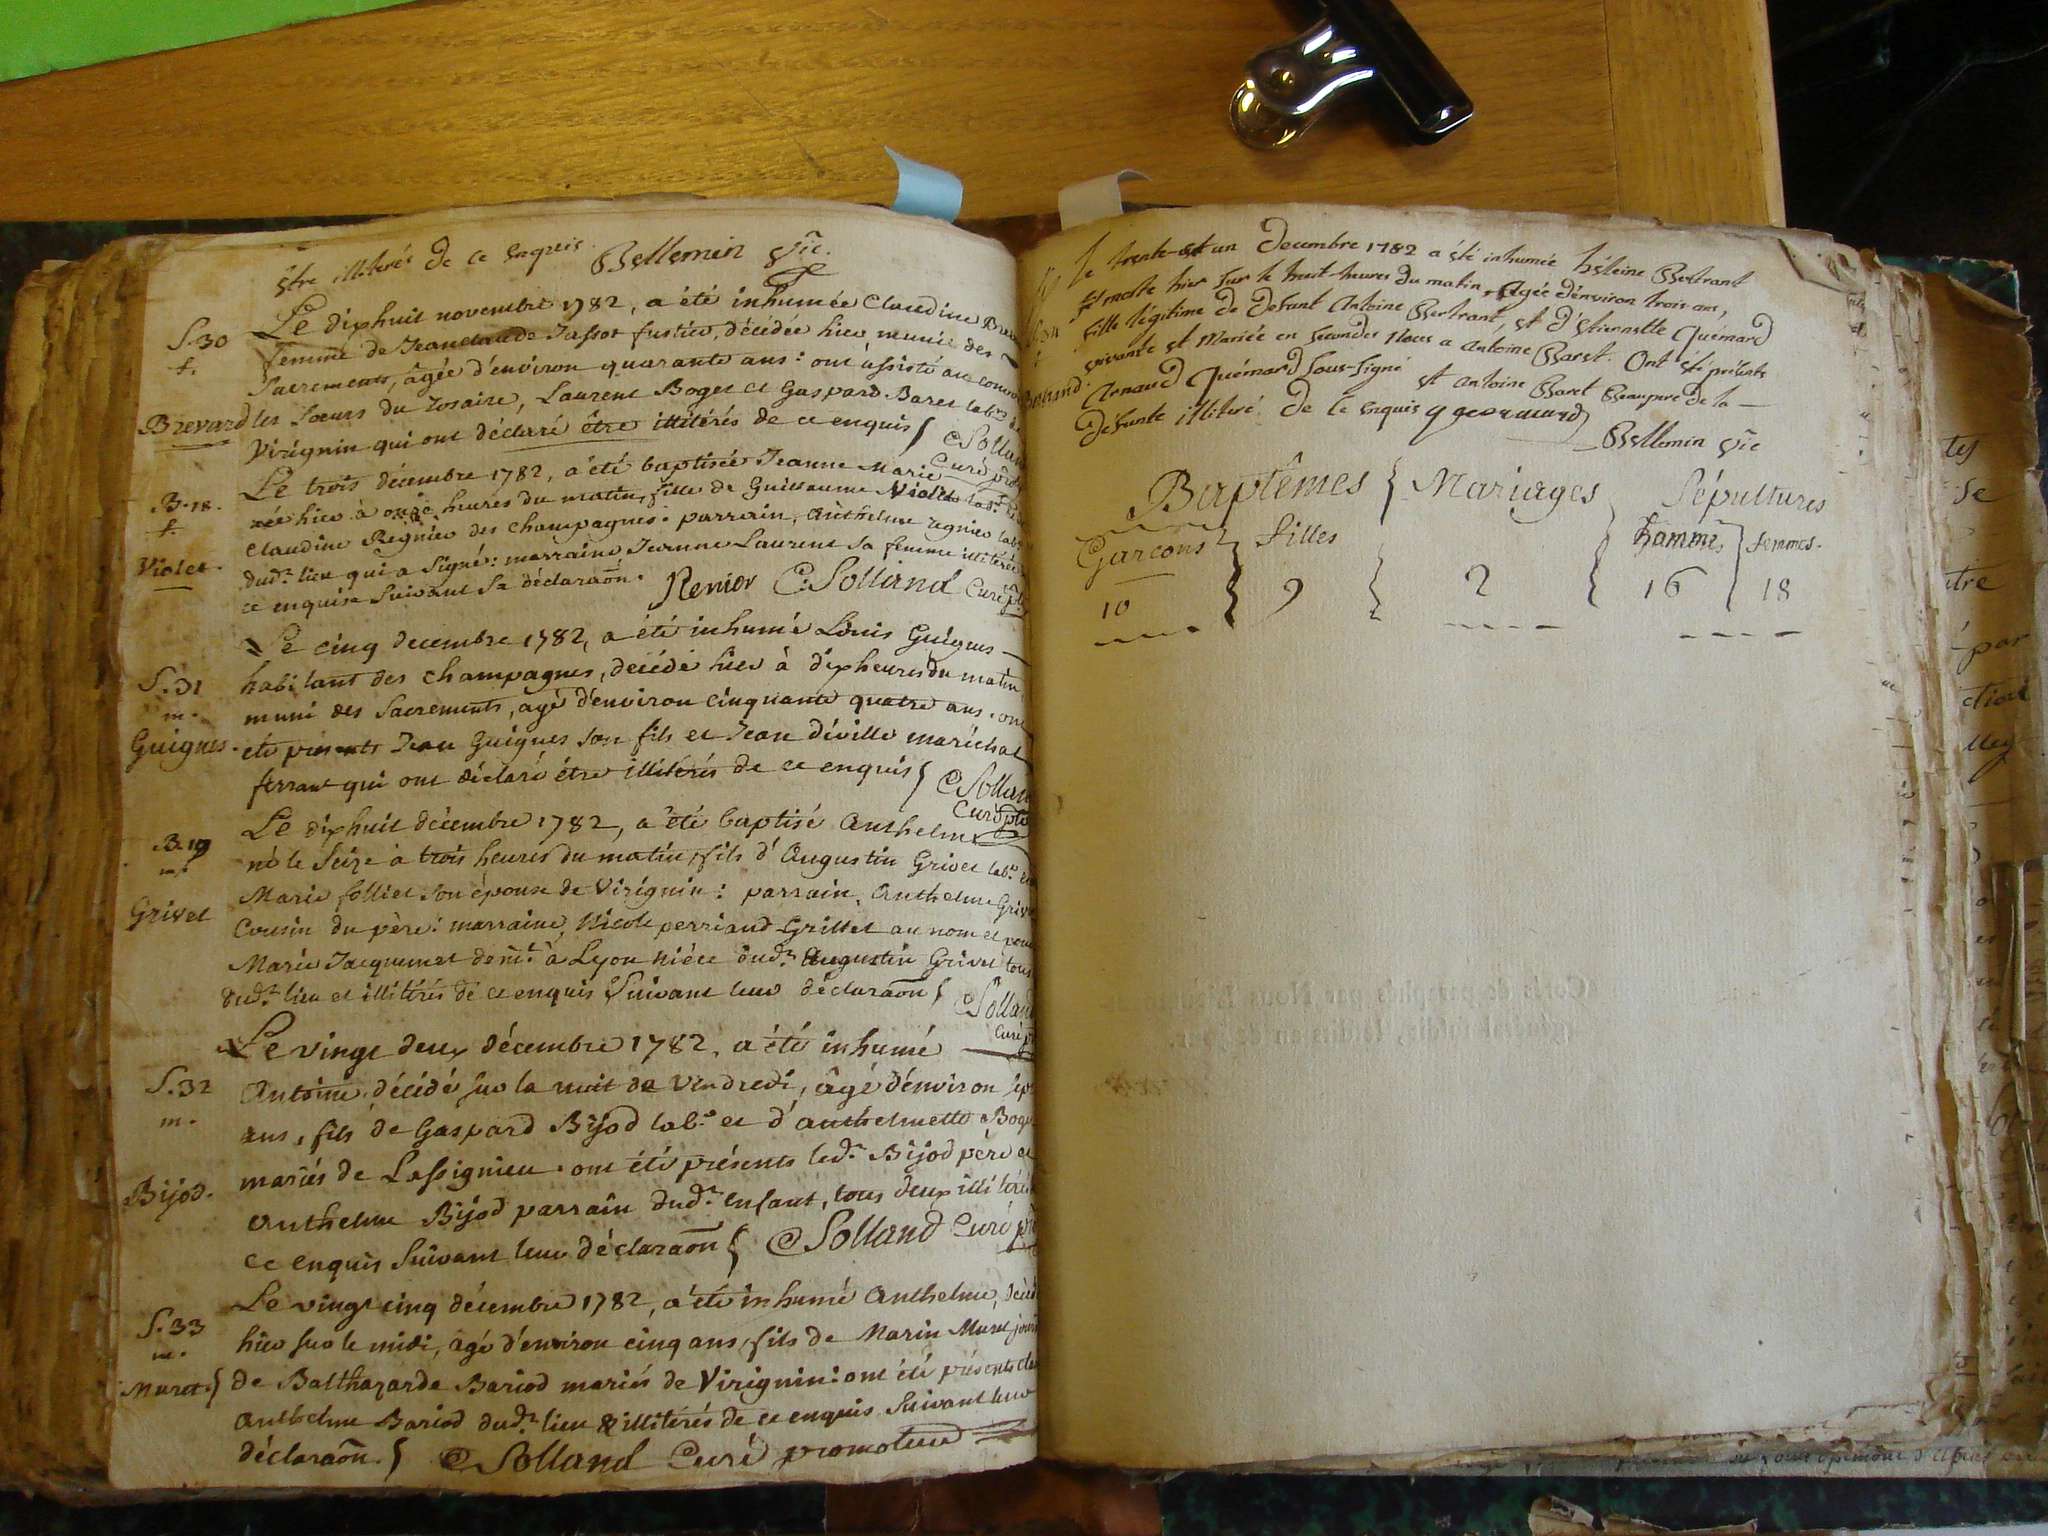 être illiterés de ce enquis. Bellemin Vic.
Le dixhuit novembre 1782, a été inhumée Claudine
S.30
f.
Brevard
femme de Jeanclaude Jassot fustier, décédée hier munie des
Sacrements, âgée d'environ quarante ans: ont assisté au
les Sœurs du rosaire, Laurent Boget et Gaspard Baret lab.rs
Virignin qui ont déclaré être illitérés de ce enquis C Solland
Curé
B.18.
f.
Violet.
Le trois décembre 1782, a été baptisée Jeanne Marie
née hier à onze heures du matin, fille de Guillaume Violet lab.r
Claudine Regnier des champagnes: parrain, Anthelme regnier lab.r
dud.t lieu qui a signé: marraine Jeanne Laurent sa femme illitérée
ce enquise suivant sa déclaraõn. Renior C. Solland Curé
S.31
m.
Guigues.
Le cinq decembre 1782, a été inhumé Louis Guigues
habitant des champagnes, decédé hier à dix heures du matin
muni des Sacrements, agé d'environ cinquante quatre ans. ont
été présents Jean Guigues son fils et Jean déville maréchal
ferrant qui ont déclaré être illiterés de ce enquis C Solland
Curé
B.19
m.
Grivet
Le dixhuit décembre 1782, a été baptisé Anthelme
né le Seize à trois heures du matin, fils d'Augustin Grivet lab.r
Marie folliet son épouse de Virignin: parrain, Anthelme Grivet
Cousin du père: marraine, Nicole perriand-Grillet au nom et pour
Marie Jacquemet dom.t à Lyon nièce dud.t Augustin Grivet tous
dud.t lieu et illitérés de ce enquis suivant leur déclaraõn C Solland
Curé
S.32
m.
Bijod.
Le vingt deux décembre 1782, a été inhumé
Antoine, décédé sur la nuit de Vendredi, âgé d'environ
ans, fils de Gaspard Bijod lab.r et d'anthelmette
mariés de Lassignieu. ont été présents led.t Bijod père et
Anthelme Bijod parrain dud.t enfant, tous deux illitérés
ce enquis suivant leur déclaraõn C Solland Curé
S.33
m.
Muret
Le vingt cinq décembre 1782, a été inhumé Anthelme,
hier sur le midi, agé d'environ cinq ans, fils de Marin Muret
de Balthazarde Bariod mariés de Virignin: ont été présents
Anthelme Bariod dud.t lieu & illitérés de ce enquis suivant leur
déclaraõn. C Solland Curé promoteur
le trente-et un Decembre 1782 a été inhumée héleine Bertrant
morte hier sur le huit-heures du matin, Agée d'environ trois ans,
fille légitime de défunt Antoine Bertrant, et d'Etiennette Quémard
vivante et Mariée en secondes Noces a Antoine Baret. Ont été présents
Arnaud Quémard sous-signé et Antoine Baret Beaupere de la
défunte illiteré de ce enquis
Bellemin Vic
Baptêmes Mariages Sépultures
Garcons filles hommes femmes.
10 9 2 16 18